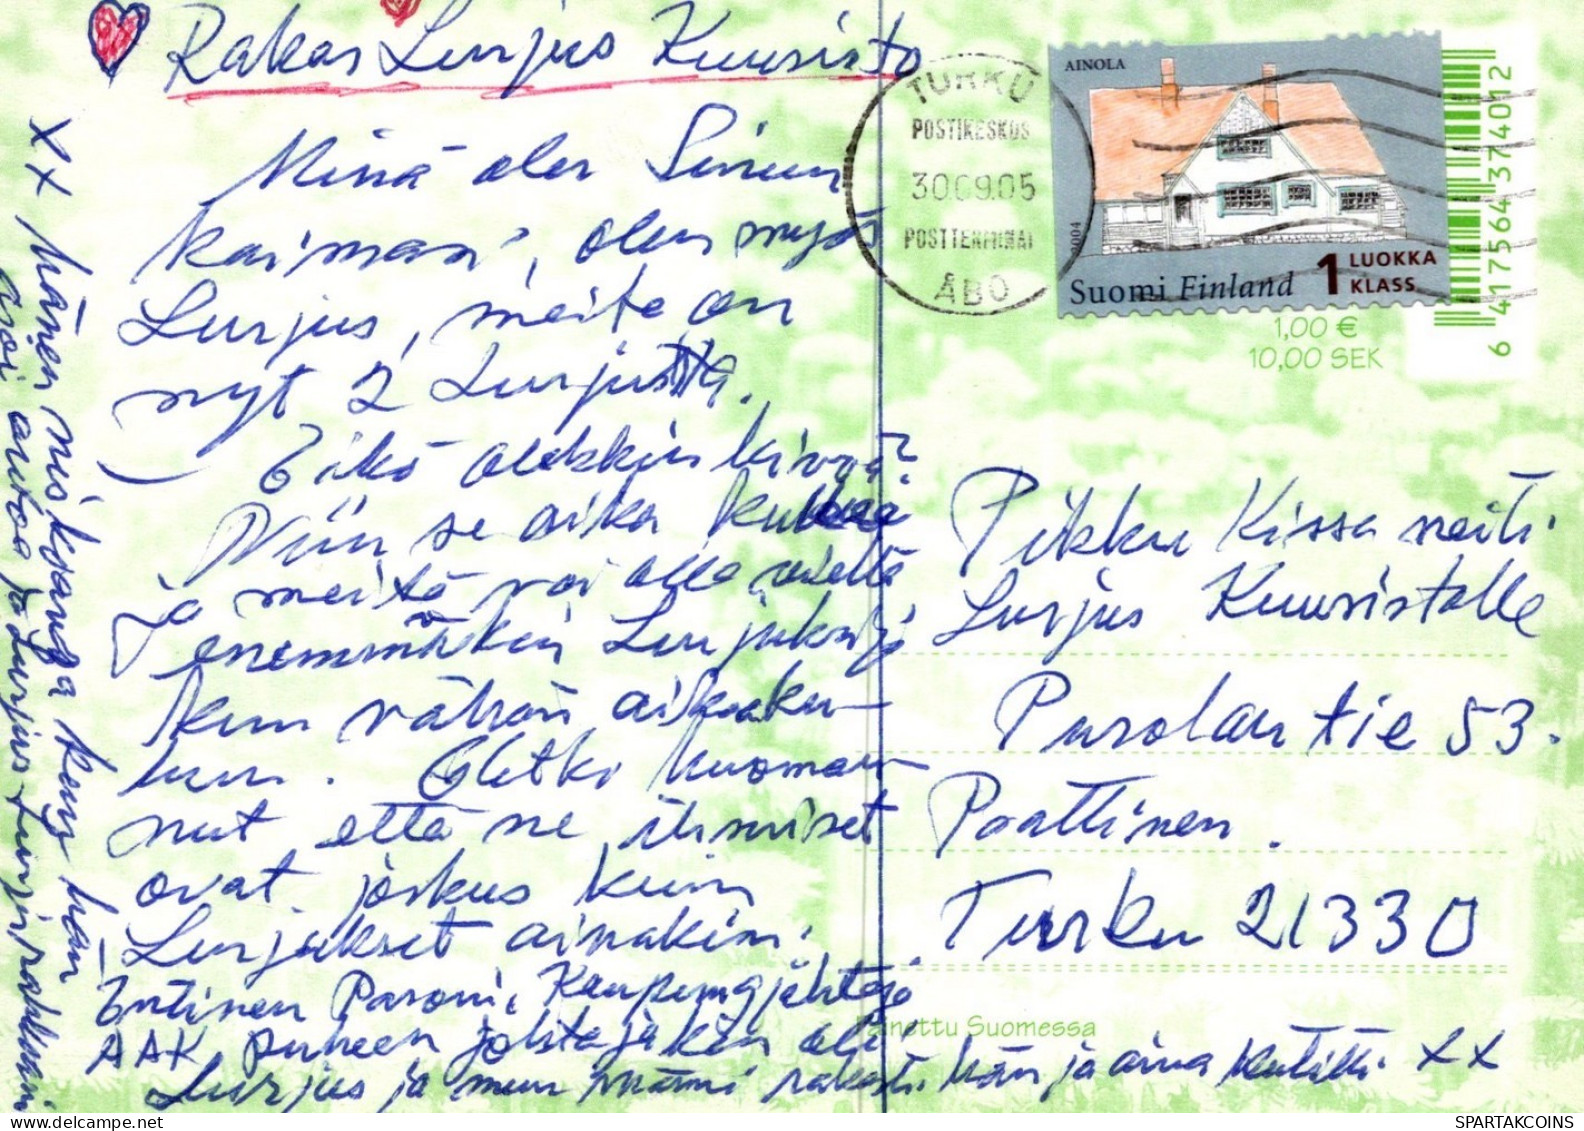 Rakas Lurjus Kuusisto
Minä olen Sinun
kaimasi, olen myös
Lurjus, meitä on
nyt 2 Lurjusta.
Eikö olekkin kivaa?
Niin se aika kuluu
ja meitä voi olla vielä
enemmänkin Lurjuksia
kun vähän aikaa ku-
luu. Oletko huoman-
nut että ne ihmiset
ovat joskus kuin
Lurjukset ainakin.
Entinen Paroni, Kaupunginjohtaja
AAK puheen johtajakin oli
Lurjus ja mun mammi rakasti hän ja aina kutitti XX
XX hänen niskajansa kun hän
ajoi autoa ja Lurjus
TURKU
POSTIKESKUS
30.09.05
POSTTERMINAL
ÅBO
AINOLA
2004
Suomi Finland 1 LUOKKA KLASS
1,00 €
10,00 SEK
6 417564 374012
Pikku Kissa neiti
Lurjus Kuusistolle
Puolan tie 53.
Paattinen.
Turku 21330
Painettu Suomessa
SPARTAKCOINS